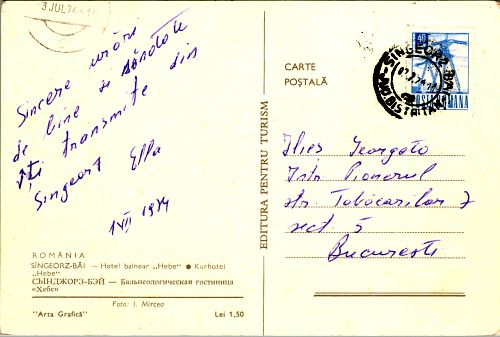 3 JUL 74
Sincere urări
de bine și sănătate
Îți transmite din
Singeorz Ella
1 VII 1974
ROMÂNIA
SÎNGEORZ-BĂI — Hotel balnear „Hebe" ● Kurhotel
„Hebe"
СЫНДЖОРЗ-БЭЙ — Бальнеологическая гостиница
«Хебе»
Foto: I. Mircea
"Arta Grafică"
Lei 1,50
EDITURA PENTRU TURISM
CARTE
POȘTALĂ
40
POSTA ROMANA
SÎNGEORZ-BĂI
BISTRIȚA
Ilieș Georgeta
Intr. Pionerul
str. Tabacarilor 7
sect. 5
București